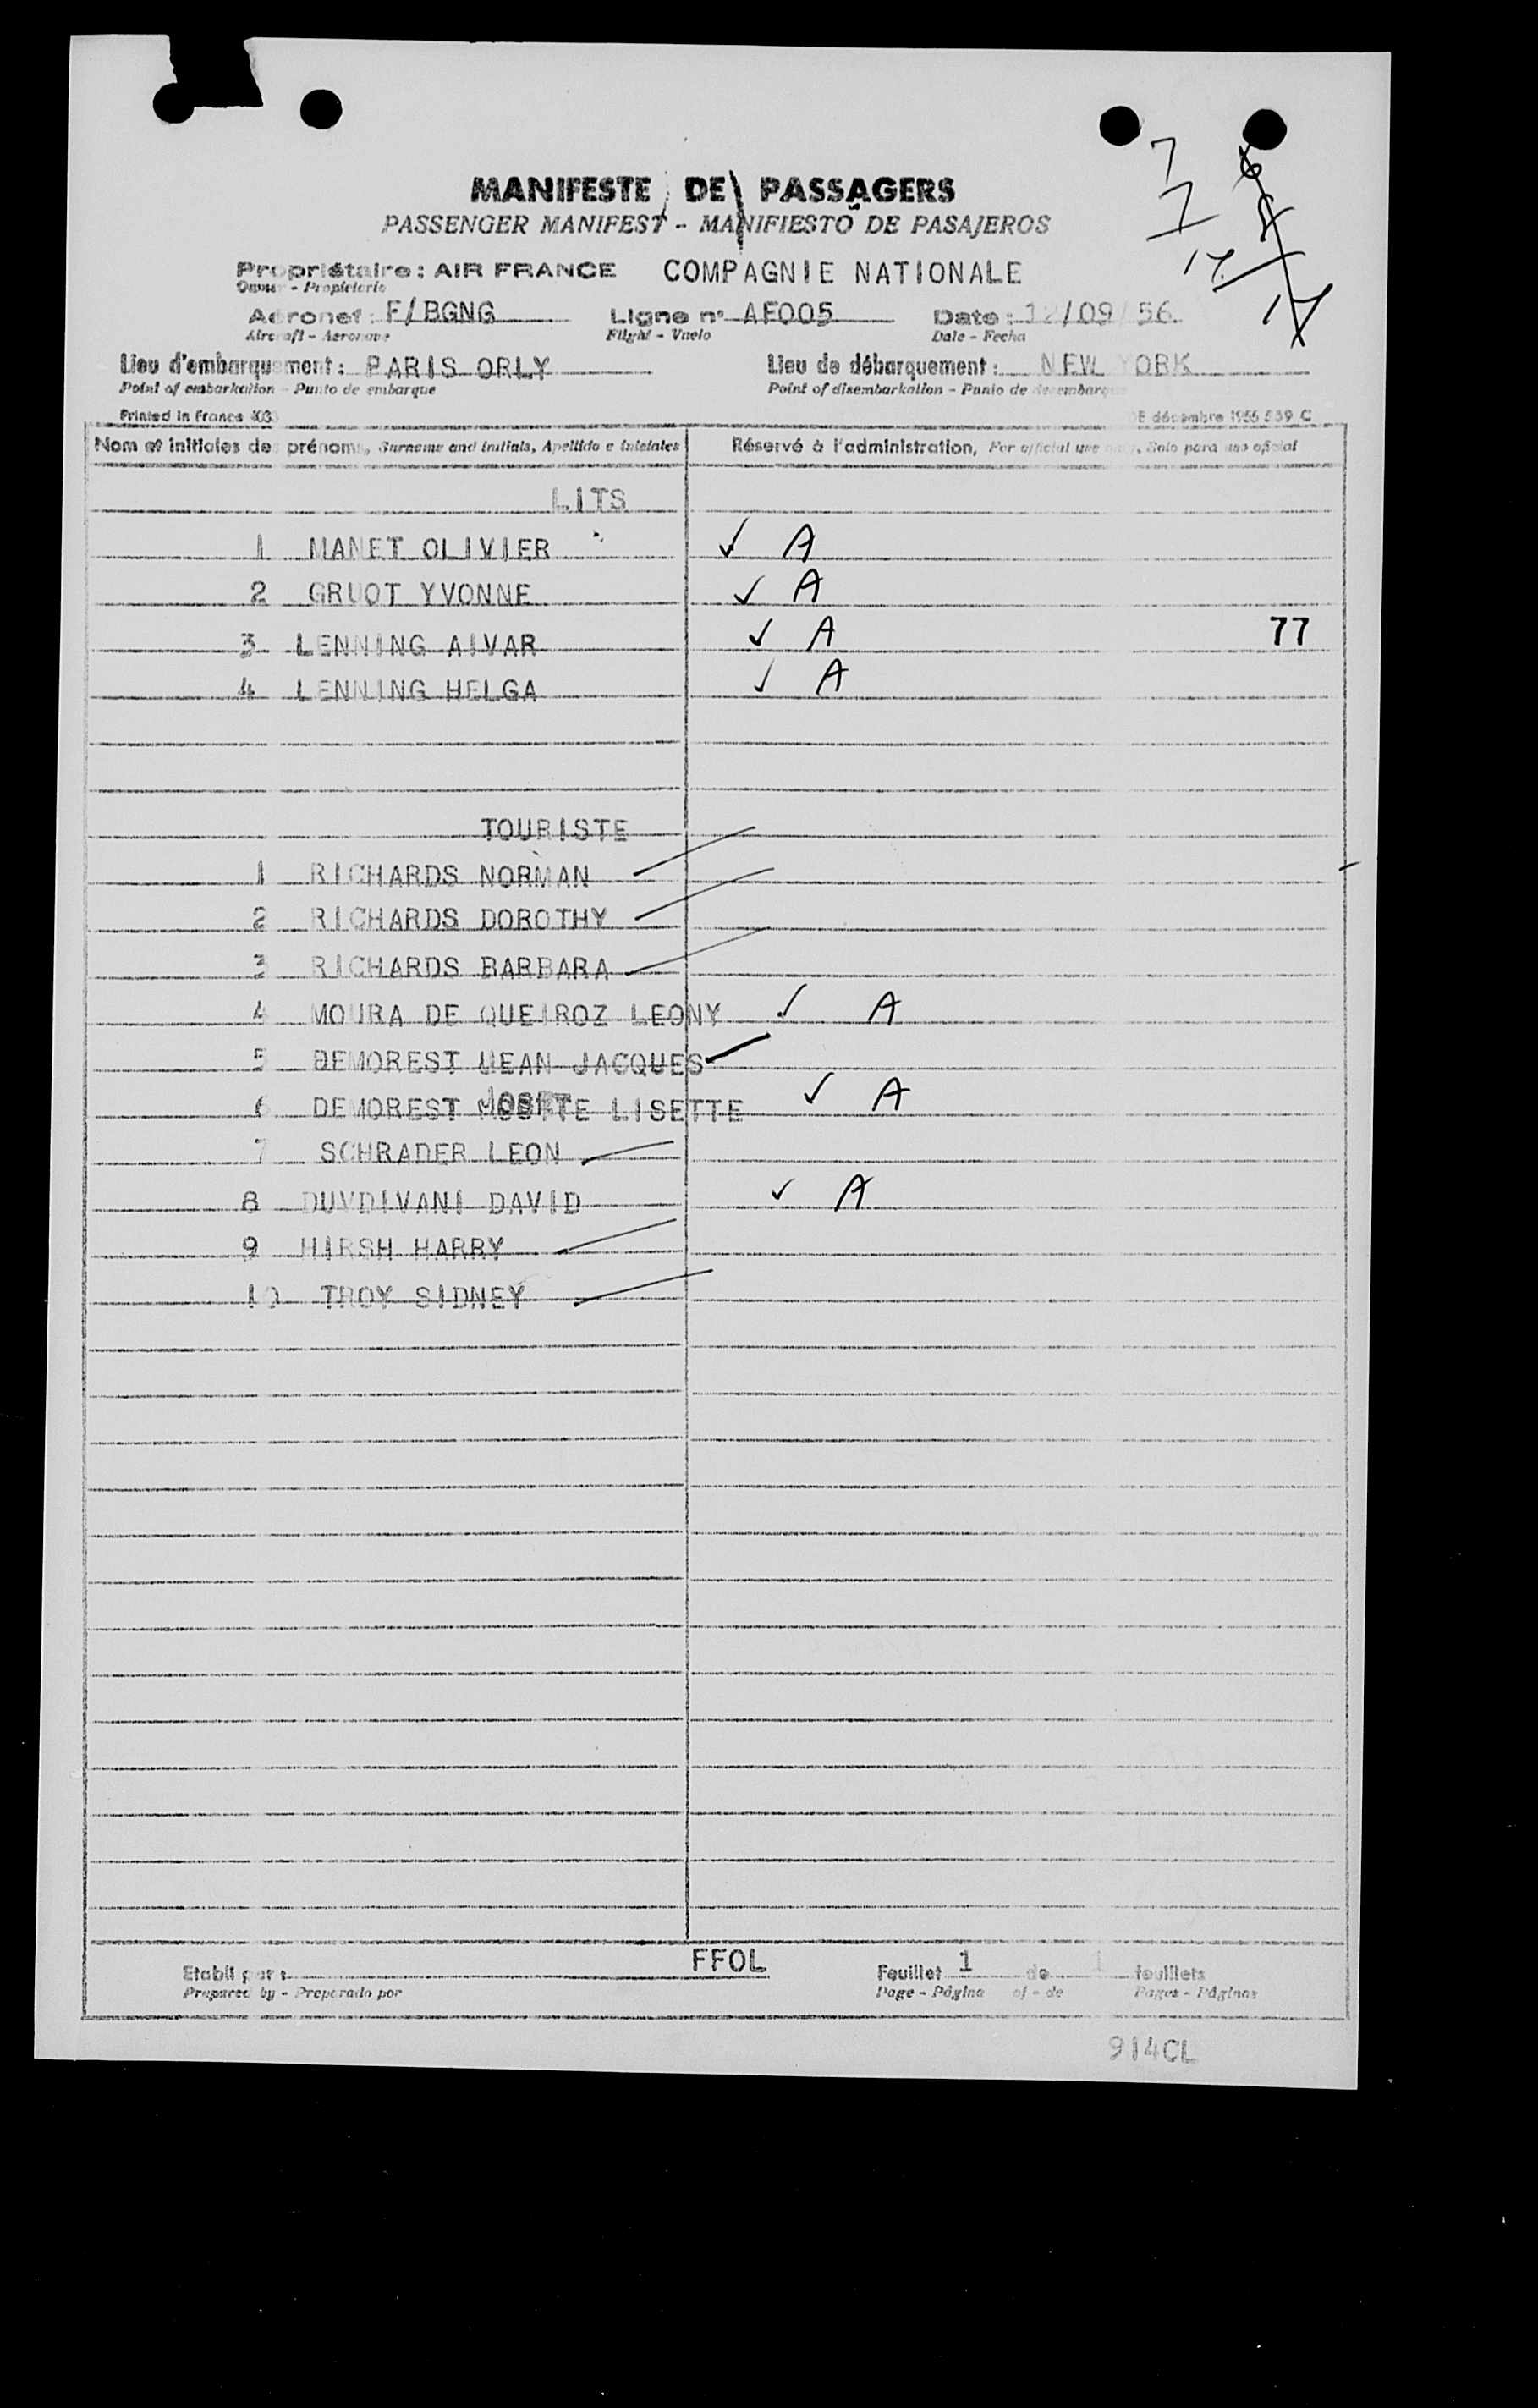 7
7
17
17
MANIFESTE DE PASSAGERS
PASSENGER MANIFEST - MANIFIESTO DE PASAJEROS
Propriétaire : AIR FRANCE COMPAGNIE NATIONALE
Owner - Propietario
Aéronef : F/BGNG Ligne n° AF005 Date : 12/09/56
Aircraft - Aeronave Flight - Vuelo Date - Fecha
Lieu d'embarquement : PARIS ORLY Lieu de débarquement : NEW YORK
Point of embarkation - Punto de embarque Point of disembarkation - Punto de desembarque
Printed in France 403 décembre 1955 539 C
Nom et initiales des prénoms, Surname and initials, Apellido e iniciales Réservé à l'administration, For official use only, Solo para uso oficial
LITS
1 MANET OLIVIER ✓ A
2 GRUOT YVONNE ✓ A
3 LENNING AIVAR ✓ A 77
4 LENNING HELGA ✓ A
TOURISTE
1 RICHARDS NORMAN
2 RICHARDS DOROTHY
3 RICHARDS BARBARA
4 MOURA DE QUEIROZ LEONY ✓ A
5 DEMOREST JEAN JACQUES
6 DEMOREST JOSETTE LISETTE ✓ A
7 SCHRADER LEON
8 DUVDIVANI DAVID ✓ A
9 HIRSH HARRY
10 TROY SIDNEY
Etabli par : FFOL Feuillet 1 de 1 feuillets
Prepared by - Preparado por Page - Página of - de Pages - Páginas
914CL